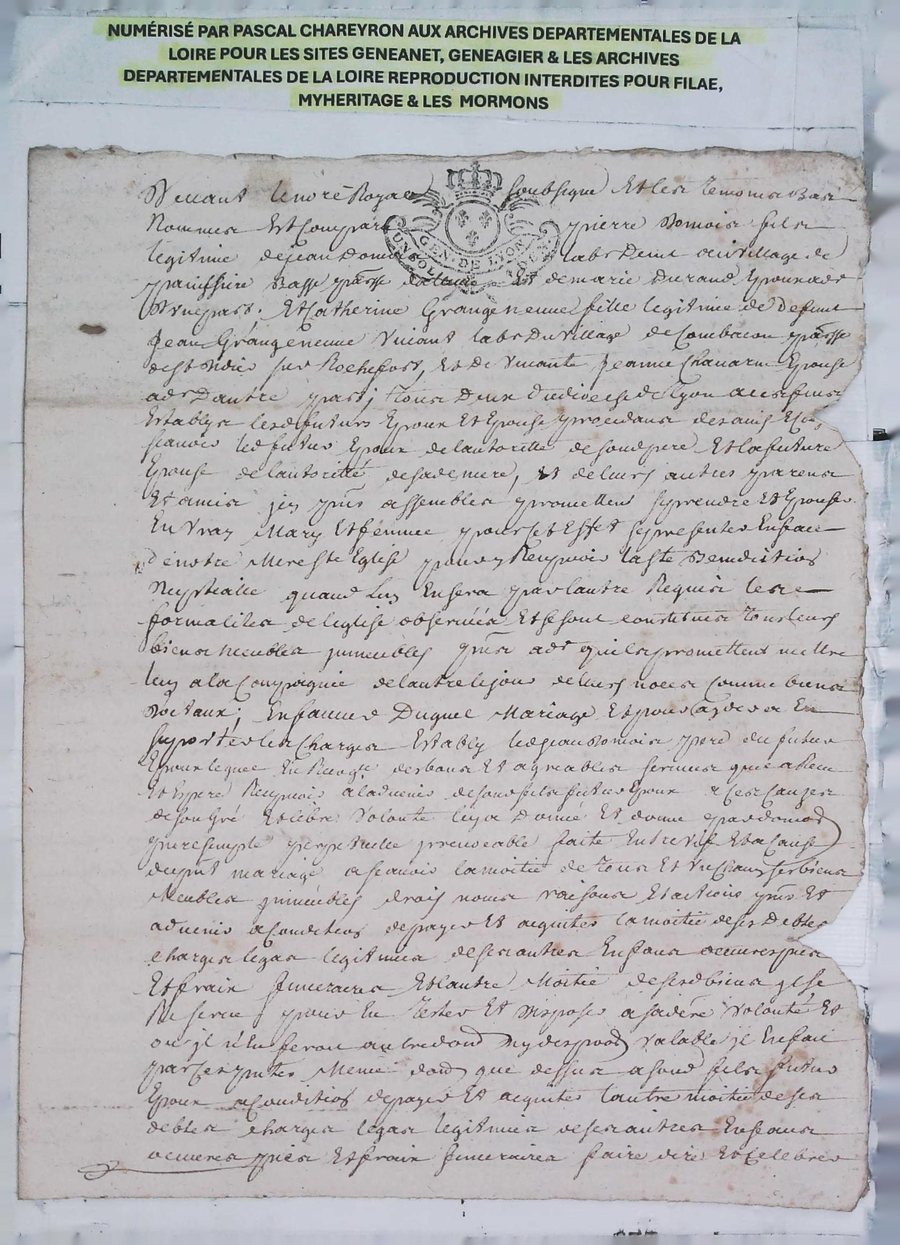 NUMÉRISÉ PAR PASCAL CHAREYRON AUX ARCHIVES DEPARTEMENTALES DE LA
LOIRE POUR LES SITES GENEANET, GENEAGIER & LES ARCHIVES
DEPARTEMENTALES DE LA LOIRE REPRODUCTION INTERDITES POUR FILAE,
MYHERITAGE & LES MORMONS
GEN. DE LYON
Royal soubsigné Et les temoins Bas
Nommes Est Comparu pierre fils
legitime de jean labr Demt au village de
de marie durand Epoux ads
D'une part. Et Catherine Grangeneuve fille legitime de Defunt
Jean Grangeneuve Vivant labr Du Village de Combacon
de St Didier sur Rochefort, Et De Vivante Jeanne Chavaru Epouse
ads D'autre part; tous Deux du dioceze de Lyon
Establys lesds futurs Epoux Et Epouse procedans de
scavoir led futur Epoux de lautorité de son pere Et la future
Epouse de lautorité de sade mere, Et de leurs autres parens
Et amis jcy pnts assemblés promettent se prendre Et Epouser
En Vray Mary Et femme pour cet Effet se presenter En face
de notre Mere Ste Eglise pour y Recevoir la ste Benediction
Nuptialle quand Lun En sera par lautre Requis les
formalités de leglise observées Et se sont constitués tous leurs
biens meubles jmmeubles pnts adr quils promettent mettre
lun a la Compagnie de lautre le jour de leurs noces comme biens
Dotaux; En faveur Duquel Mariage Et pour Ayder a En
suporter les Charges Estably led jean pere du futur
Epoux lequel En des bons Et agreables services quil a Receu
Et Espere Recevoir a ladvenir de sond fils futur Epoux
de son gré Et libre Volonté luy a Donné Et donne par donaon
pure simple perpetuelle jrrevocable faite Entre vif Et a cause
dud mariage a scavoir la moitié de tous Et Un Chacun ses biens
Meubles jmmeubles droits noms raisons Et actions pnts Et
advenir a Condition de payer Et acquiter la moitié de ses Debtes
charges legas legitimes de ses autres Enfans pies
Et frais funeraires Et lautre Moitié de sesd biens jl se
Reserve pour En tester Et disposer a sade Volonté Et
ou jl n'En feroit autre don Ny valable jl En fait
par ces pntes Meme don que dessus a sond fils futur
Epoux a Condition de payer Et acquiter lautre moitié de ses
debtes charges legas legitimes de ses autres Enfans
pies Et frais funeraires faire dire Et Celebrer